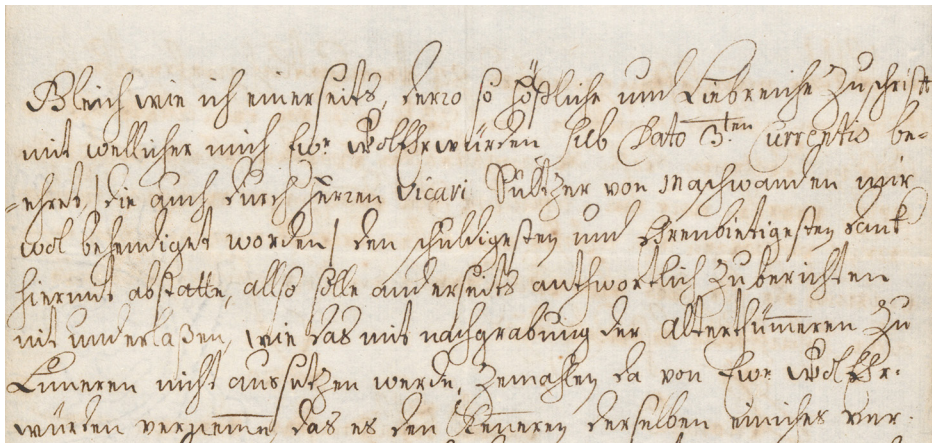 Gleich wie ich einerseits, dero so höfliche und Liebreiche Zuschrifft
mit wellicher mich Ewr WolEhrwürden sub Dato 3.ten Currentis be-
-ehret, | die auch durch Herren Vicari Sultzer von Maschwanden mir
wol behendiget worden | den schuldigesten und Ehrenbietigesten danck
hiermit abstatte, allso solle anderseits anthwortlich zu berichten
nit underlaßen, wie das mit nachgrabung der Alterthümmeren zu
Lunneren nicht aussetzen werde, zemahlen da von Ewr WolEhr-
würden vernemme, das es den Kenneren derselben einiches ver-